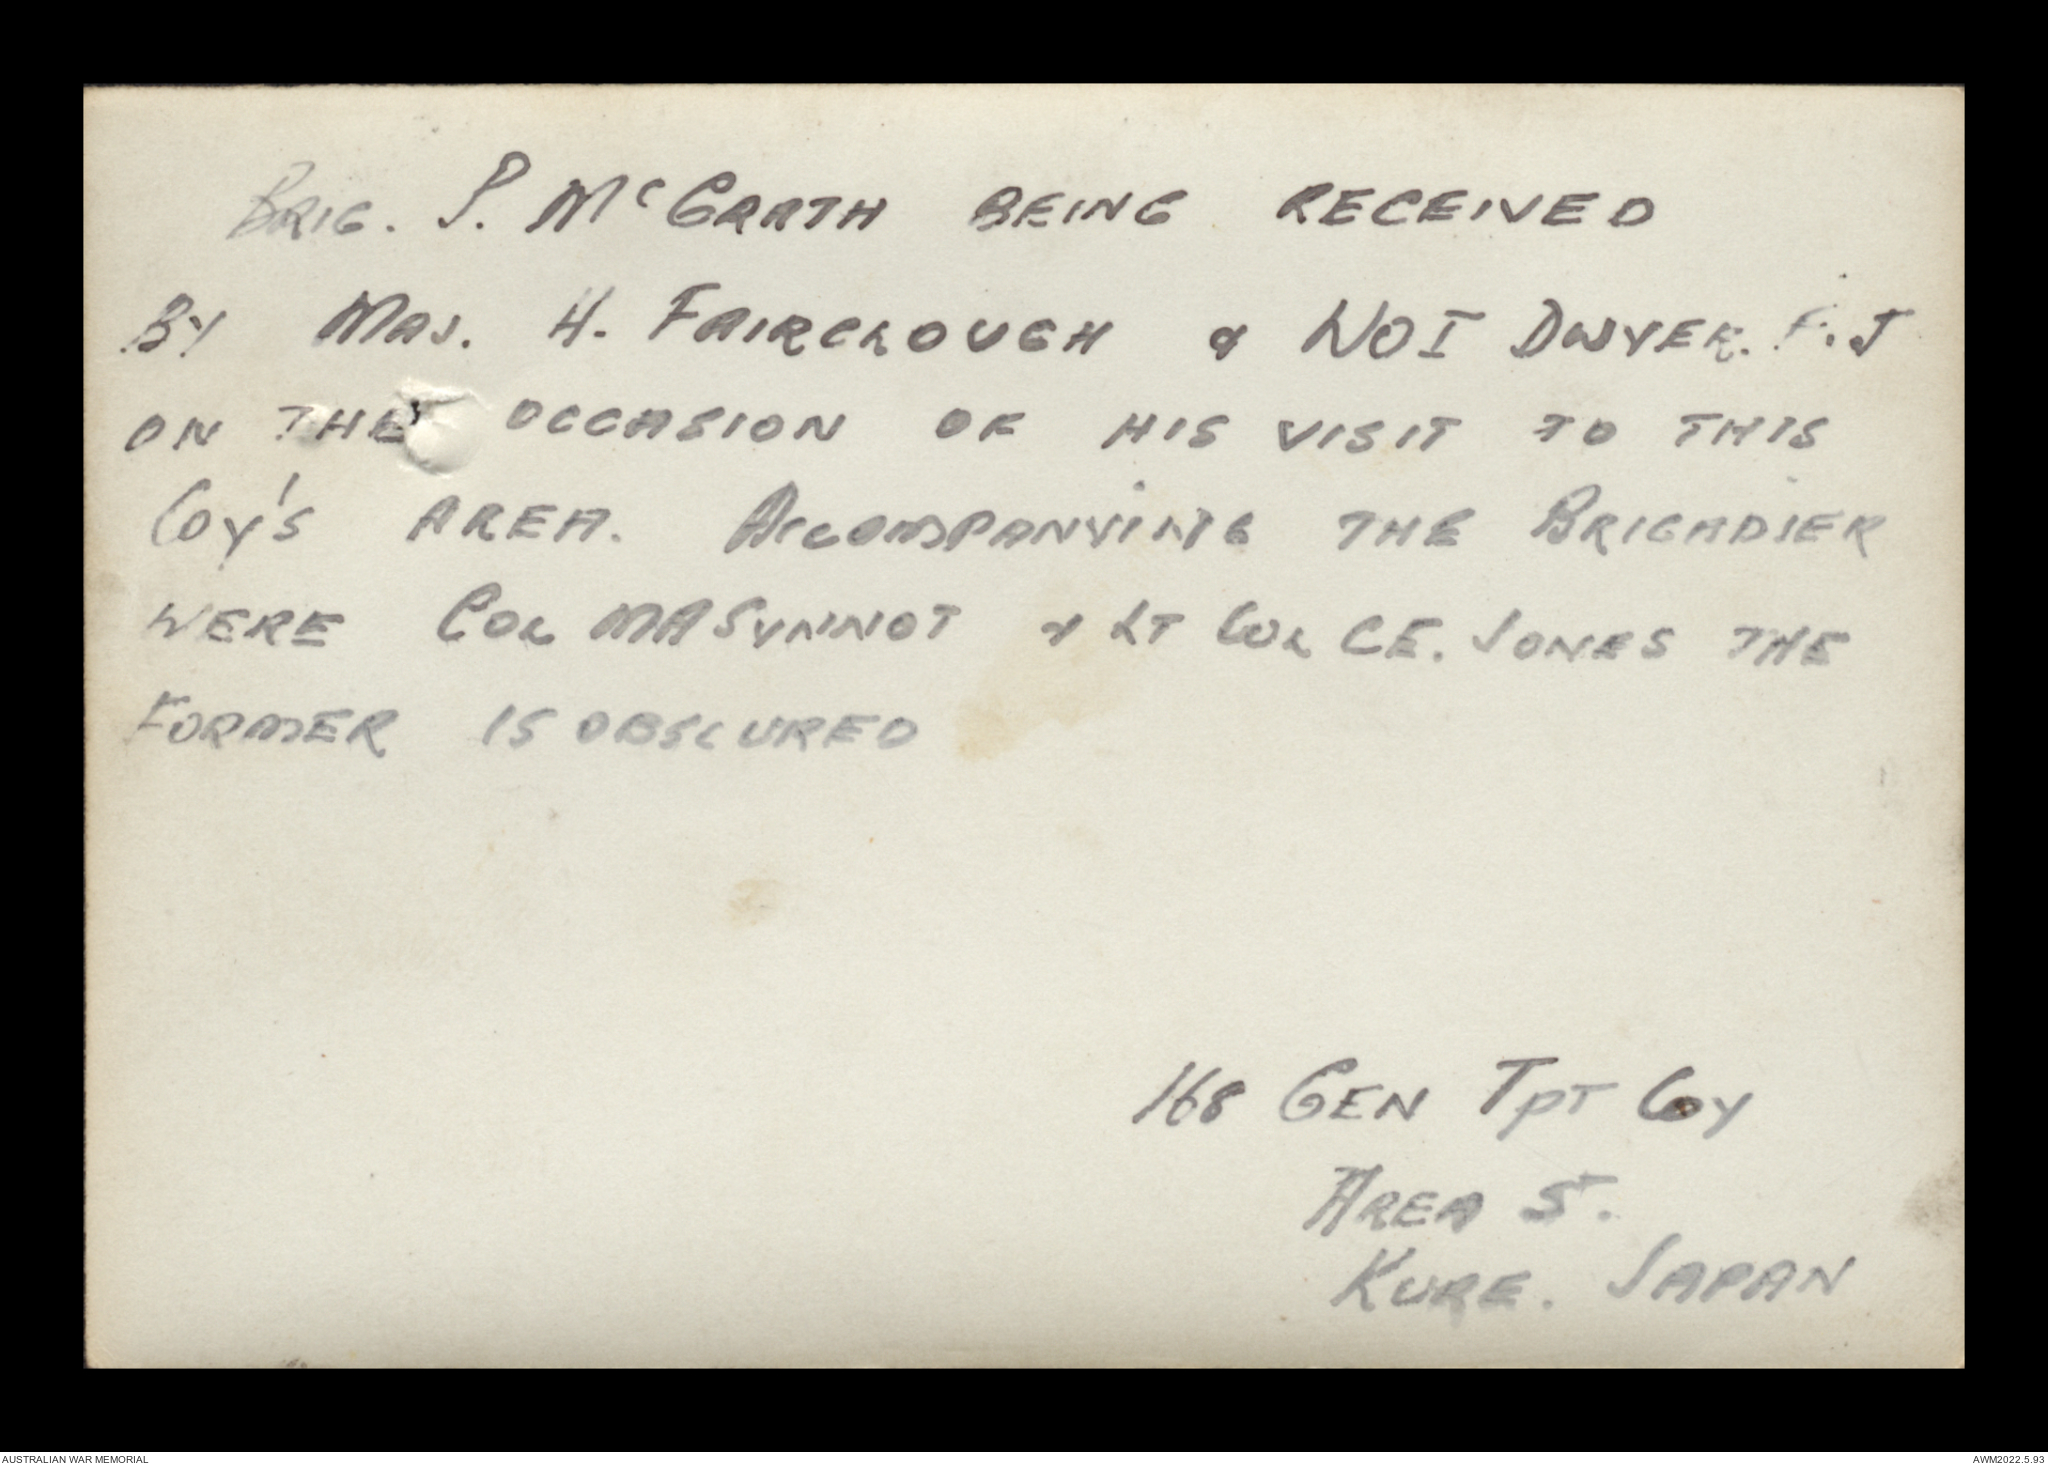 BRIG. P. McGRATH BEING RECEIVED
BY MAJ. H. FAIRCLOUGH & WOI DWYER. F. J
ON THE OCCASION OF HIS VISIT TO THIS
COY'S AREA. ACCOMPANYING THE BRIGADIER
WERE COL MASYNNOT & LT COL C.E. JONES THE
FORMER IS OBSCURED
168 GEN TPT COY
AREA 5.
KURE. JAPAN
AUSTRALIAN WAR MEMORIAL
AWM2022.5.93